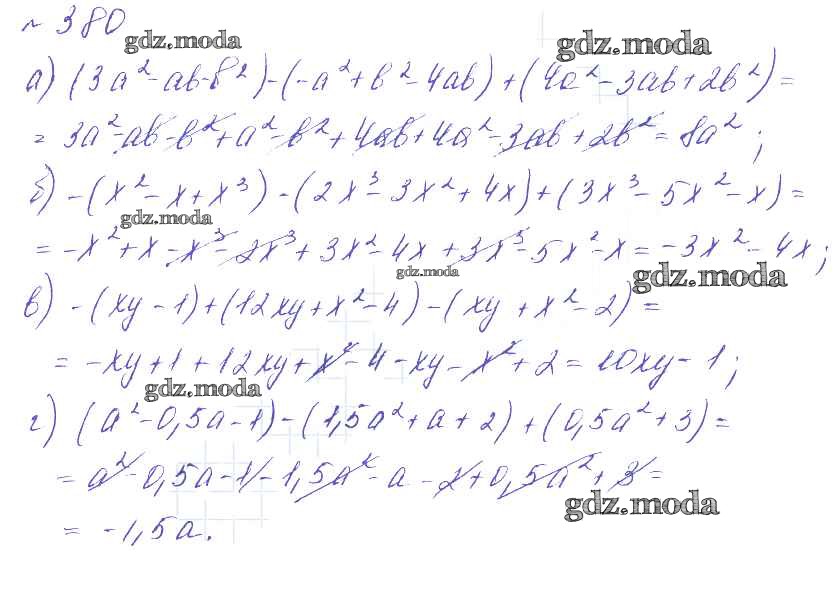 № 380
gdz.moda
gdz.moda
а) (3a² - ab - b²) - (-a² + b² - 4ab) + (4a² - 3ab + 2b²) =
= 3a² - ab - b² + a² - b² + 4ab + 4a² - 3ab + 2b² = 8a²;
б) -(x² - x + x³) - (2x³ - 3x² + 4x) + (3x³ - 5x² - x) =
gdz.moda
= -x² + x - x³ - 2x³ + 3x² - 4x + 3x³ - 5x² - x = -3x² - 4x;
gdz.moda
gdz.moda
в) -(xy - 1) + (12xy + x² - 4) - (xy + x² - 2) =
= -xy + 1 + 12xy + x² - 4 - xy - x² + 2 = 10xy - 1;
gdz.moda
г) (a² - 0,5a - 1) - (1,5a² + a + 2) + (0,5a² + 3) =
= a² - 0,5a - 1 - 1,5a² - a - 2 + 0,5a² + 3 =
gdz.moda
= -1,5a.